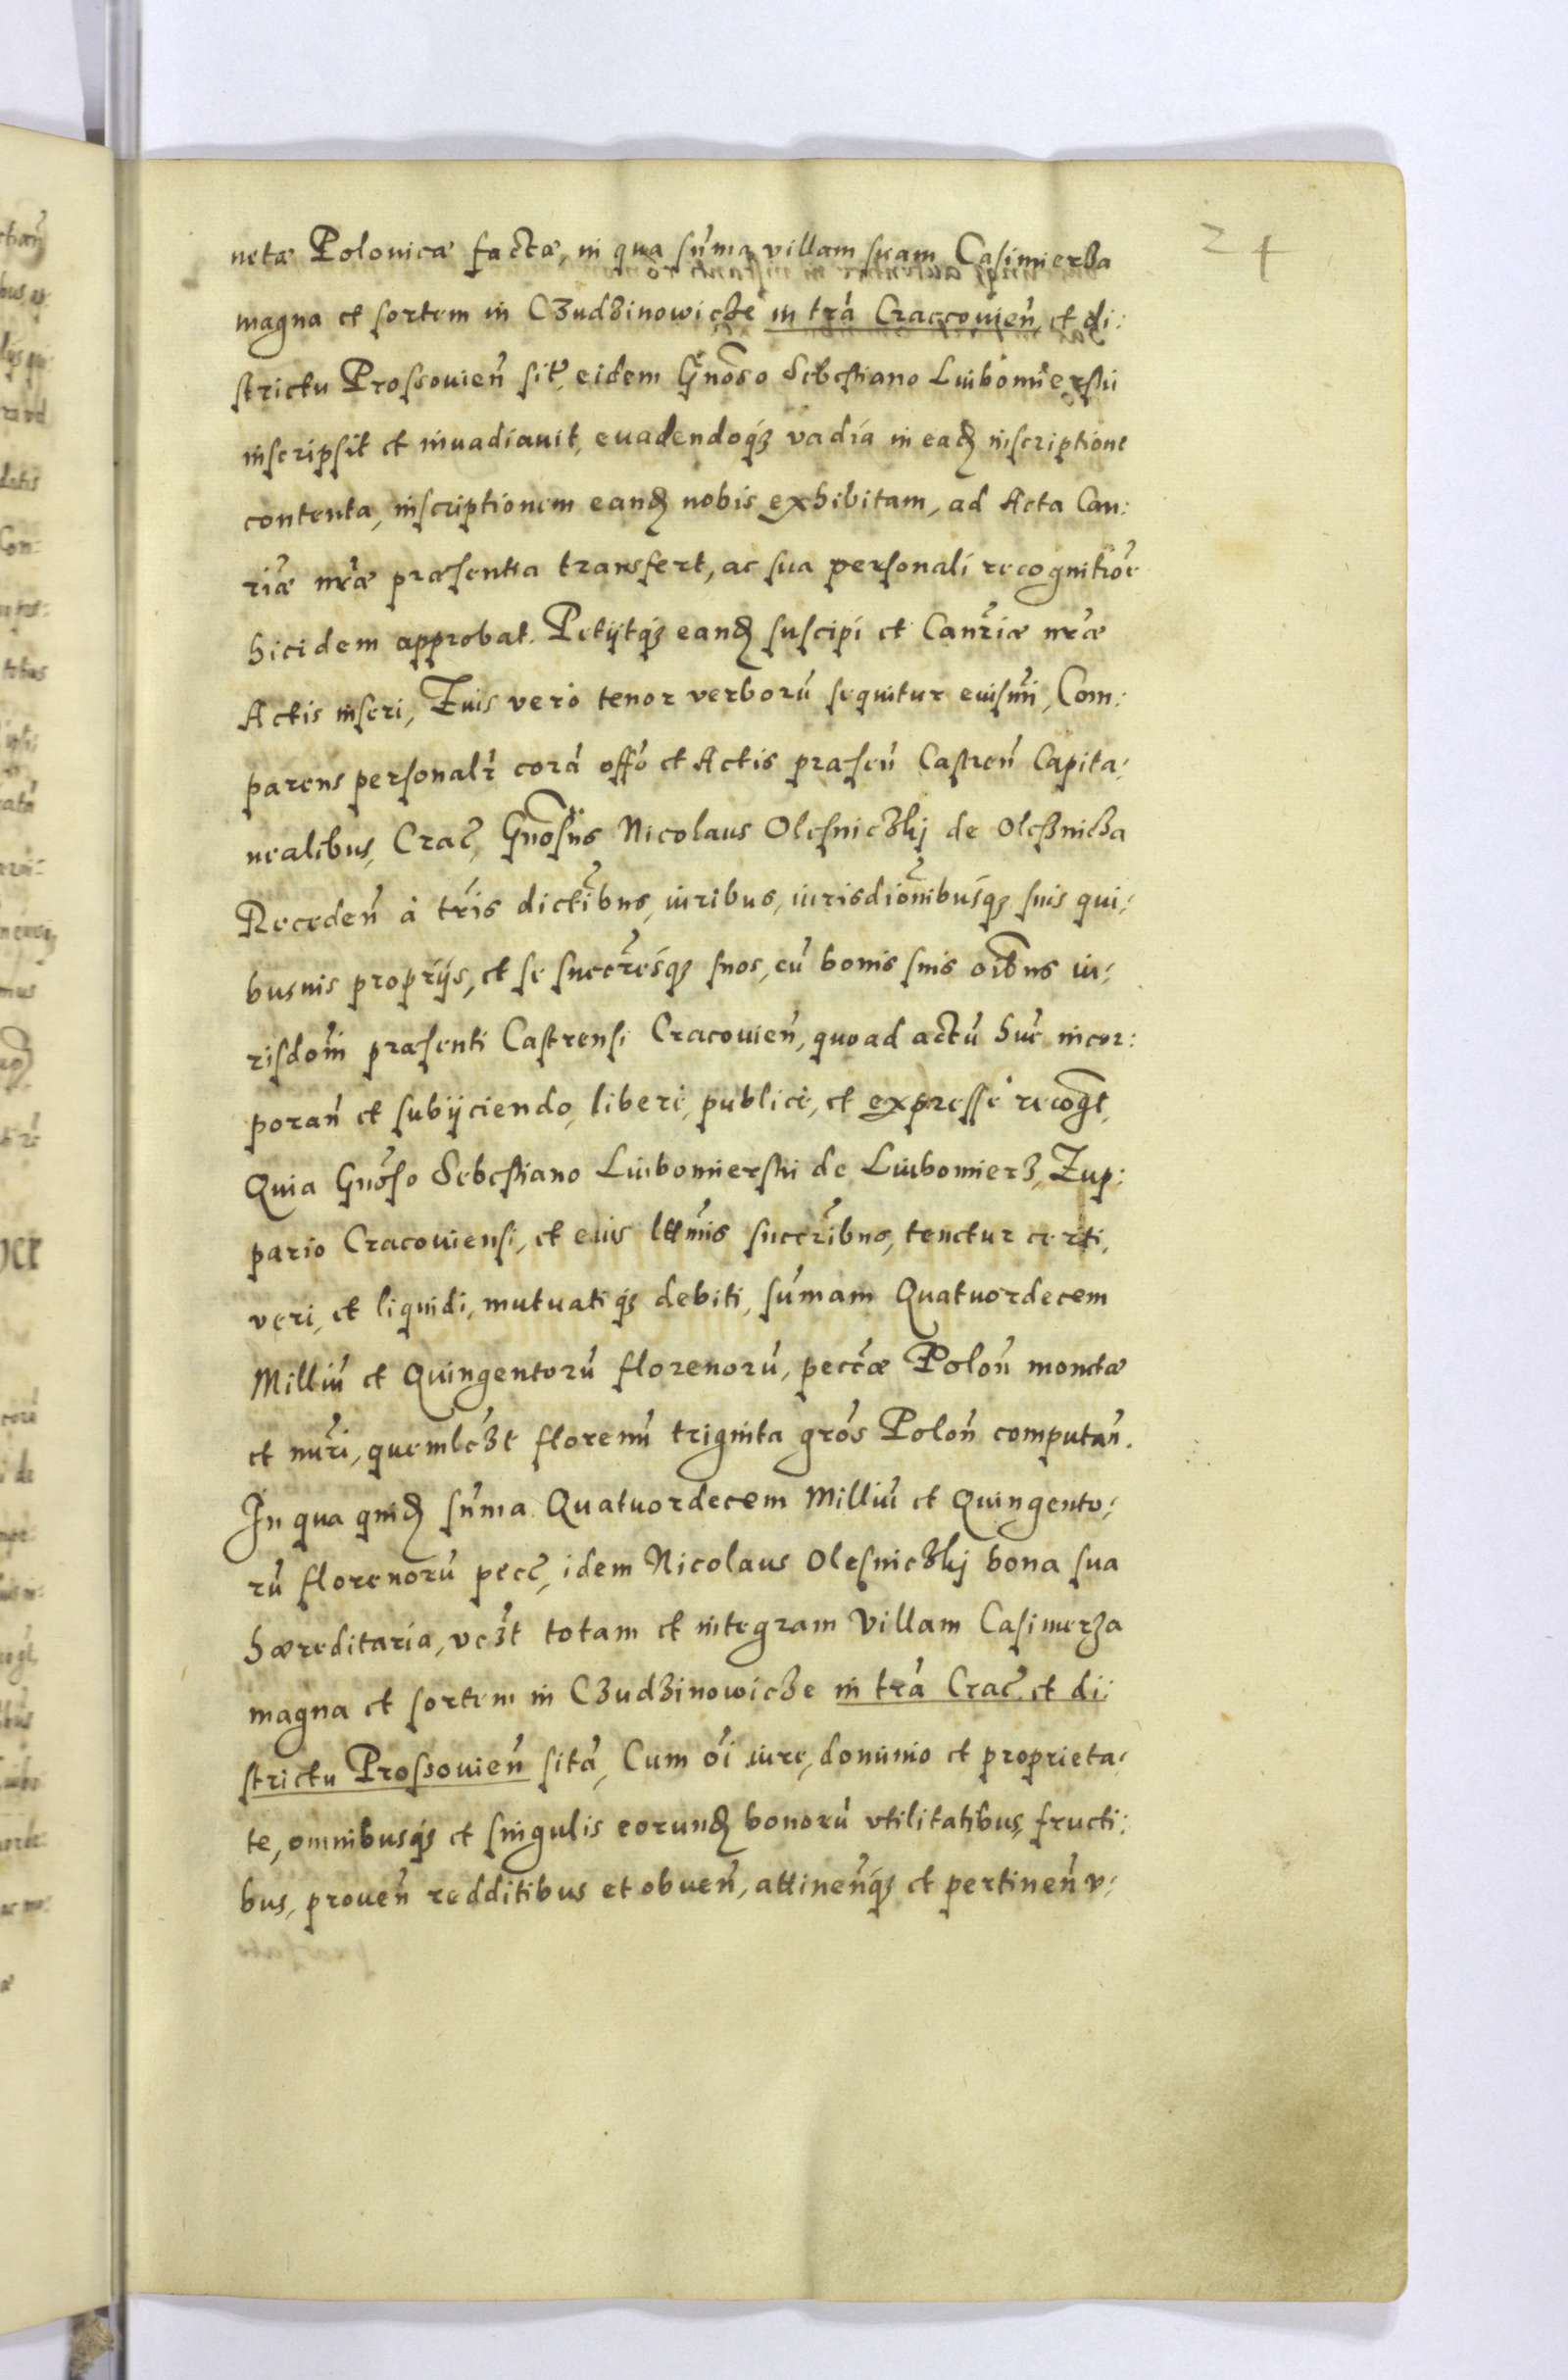 24
netæ Polonicæ factæ, in qua sum̃a villam suam Casimierza
magna et sortem in Czudzinowicze in tr̃a Craccouien̄, et di:
strictu Prossouien̄ sit̃, eidem Gn̄oso Sebestiano Luibomierski
inscripsit et inuadiauit, euadendoq́ꝫ vadia in eaꝝ inscriptione
contenta, inscriptionem eanꝝ nobis exhibitam, ad Acta Can:
riæ nr̃æ præsentia transfert, ac sua personali recognitiõe
hicidem approbat. Petijtq́ꝫ eanꝝ suscipi et Canr̃iæ nr̃æ
Actis inseri, Euis vero tenor verborũ sequitur euism̃i, Com:
parens personalr̃ corã offõ et Actis præsen̄ Castren̄ Capita:
nealibus, Crac̃, Gn̄osus Nicolaus Olesniczkj de Olesznicza
Receden̄ à tr̃is dictĩbus, iuribus, iurisdiõnibusq́ꝫ suis qui:
busuis proprijs, et se succr̃esq́ꝫ suos, cũ bonis suis oĩbus iu:
risdõni præsenti Castrensi Cracouien̄, quo ad actũ hũc incor:
poran̄ et subijciendo, liberè, publicè, et expressè recog̃t,
Quia Gnõso Sebestiano Luibomierski de Luibomierz, Zup:
pario Cracouiensi, et euis lttm̃is succr̃ibus, tenetur certi,
veri, et liquidi, mutuatiq́ꝫ debiti, sum̃am Quatuordecem
Milliũ et Quingentorũ florenorũ, pecc̃æ Polon̄ monetæ
et nur̃i, quemlc̃zt florenũ triginta grõs Polon̄ computan̄.
In qua quiꝝ sum̃a Quatuordecem Milliũ et Quingento:
rũ florenorũ pecc̃, idem Nicolaus Olesniczkj bona sua
hæreditaria, vc̃zt totam et integram Villam Casimerza
magna et sortem in Czudzinowicze in tr̃a Crac̃ et di:
strictu Prossouien̄ sitã, Cum õi iure, dominio et proprieta:
te, omnibusq́ꝫ et singulis eorunꝝ bonorũ vtilitatibus, fructi:
bus, prouen̄ redditibus et obuen̄, attinen̄q́ꝫ et pertinen̄ v: